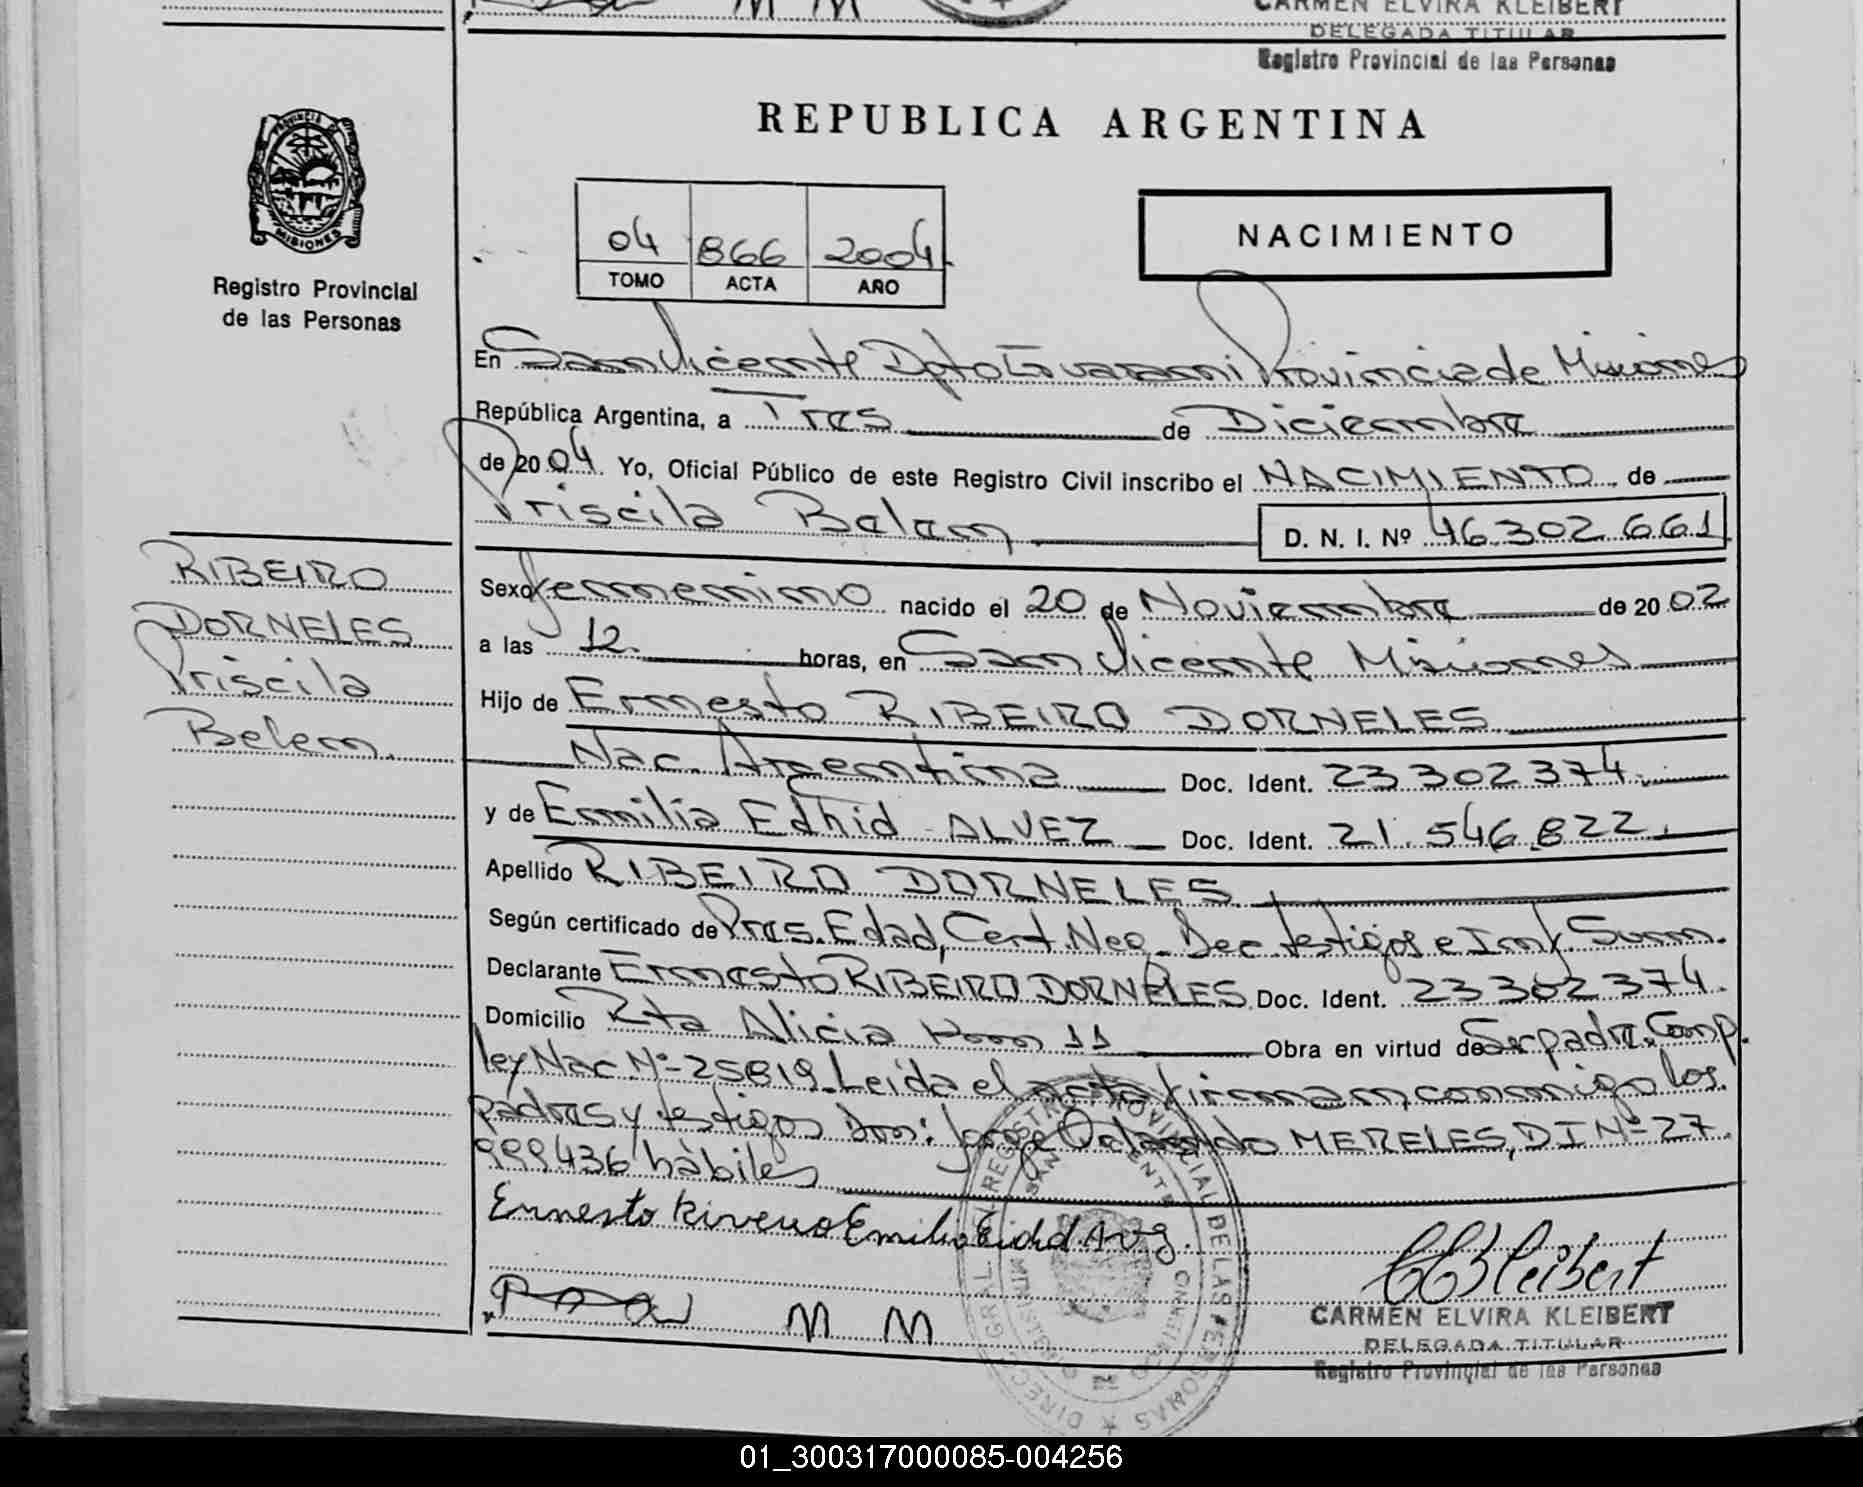 CARMEN ELVIRA KLEIBERT
DELEGADA TITULAR
Registro Provincial de las Personas
PROVINCIA DE
MISIONES
Registro Provincial
de las Personas
REPUBLICA ARGENTINA
04 866 2004
TOMO ACTA AÑO
NACIMIENTO
En San Vicente Dpto Guarani Provincia de Misiones
República Argentina, a Tres de Diciembre
de 2004. Yo, Oficial Público de este Registro Civil inscribo el NACIMIENTO de
Priscila Belem D. N. I. Nº 46.302.661
RIBEIRO
DORNELES
Priscila
Belem.
Sexo femenino nacido el 20 de Noviembre de 2002
a las 12. horas, en San Vicente Misiones
Hijo de Ernesto RIBEIRO DORNELES
Nac. Argentina Doc. Ident. 23302374
y de Emilia Edhid ALVEZ Doc. Ident. 21.546.822.
Apellido RIBEIRO DORNELES
Según certificado de Pres. Edad, Cert. Neg. Dec testigos e Inf. Sum.
Declarante Ernesto RIBEIRO DORNELES Doc. Ident. 23302374.
Domicilio Rta Alicia Km 11 Obra en virtud de Ser padre. Comp.
ley Nac Nº 25819. Leída el acta firman conmigo los
padres y testigos Don: Jorge Orlando MERELES, DI Nº 27.
999436 hàbiles
Ernesto Rivero Emilia
CARMEN ELVIRA KLEIBERT
DELEGADA TITULAR
Registro Provincial de las Personas
01_300317000085-004256